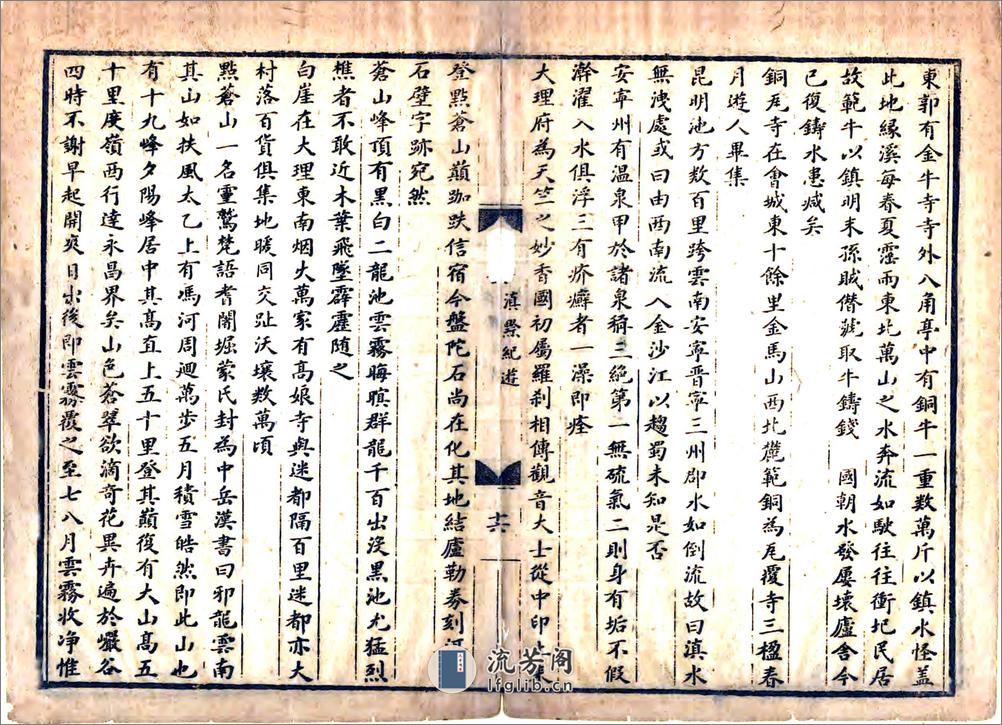 東郭有金牛寺寺外八角亭中有銅牛一重數萬斤以鎮水怪蓋
此地緣溪每春夏霪雨東北萬山之水奔流如駛往往衝圮民居
故範牛以鎮明末孫賊僭號取牛鑄錢 國朝水發屢壞廬舍今
已復鑄水患減矣
銅瓦寺在會城東十餘里金馬山西北麓範銅為瓦覆寺三楹春
月遊人畢集
昆明池方數百里跨雲南安寧晉寧三州郡水如倒流故曰滇水
無洩處或曰由西南流入金沙江以趨蜀未知是否
安寧州有溫泉甲於諸泉稱三絕第一無硫氣二則身有垢不假
澣濯入水俱浮三有疥癬者一澡即痊
大理府為天竺之妙香國初屬羅刹相傳觀音大士從中印
滇黔紀遊
十六
登點蒼山巔跏趺信宿今盤陀石尚在化其地結廬勒券刻
石壁字跡宛然
蒼山峰頂有黑白二龍池雲霧晦暝群龍千百出沒黑池尤猛烈
樵者不敢近木葉飛墜霹靂隨之
白崖在大理東南烟火萬家有高娘寺與迷都隔百里迷都亦大
村落百貨俱集地暖同交趾沃壤數萬頃
點蒼山一名靈鷲梵語耆闍堀蒙氏封為中岳漢書曰邪龍雲南
其山如扶風太乙上有馮河周迴萬步五月積雪皓然即此山也
有十九峰夕陽峰居中其高直上五十里登其巔復有大山高五
十里度嶺西行達永昌界矣山色蒼翠欲滴奇花異卉遍於巖谷
四時不謝早起開爽日出後即雲霧覆之至七八月雲霧收净惟
流芳阁
lfglib.cn